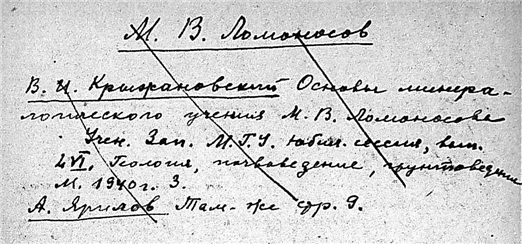 М. В. Ломоносов
В. И. Крыжановский Основы минера-
логического учения М. В. Ломоносова
Учен. Зап. М.Г.У. юбил. сессия, вып.
LVI, Геология, почвоведение, грунтоведение
М. 1940г. 3.
А. Ярилов Там-же стр. 9.